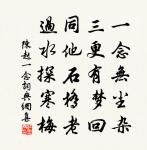 一念無塵雜
三更有夢回
同他石橋老
過水探寒梅
陳赵一念詞典網集